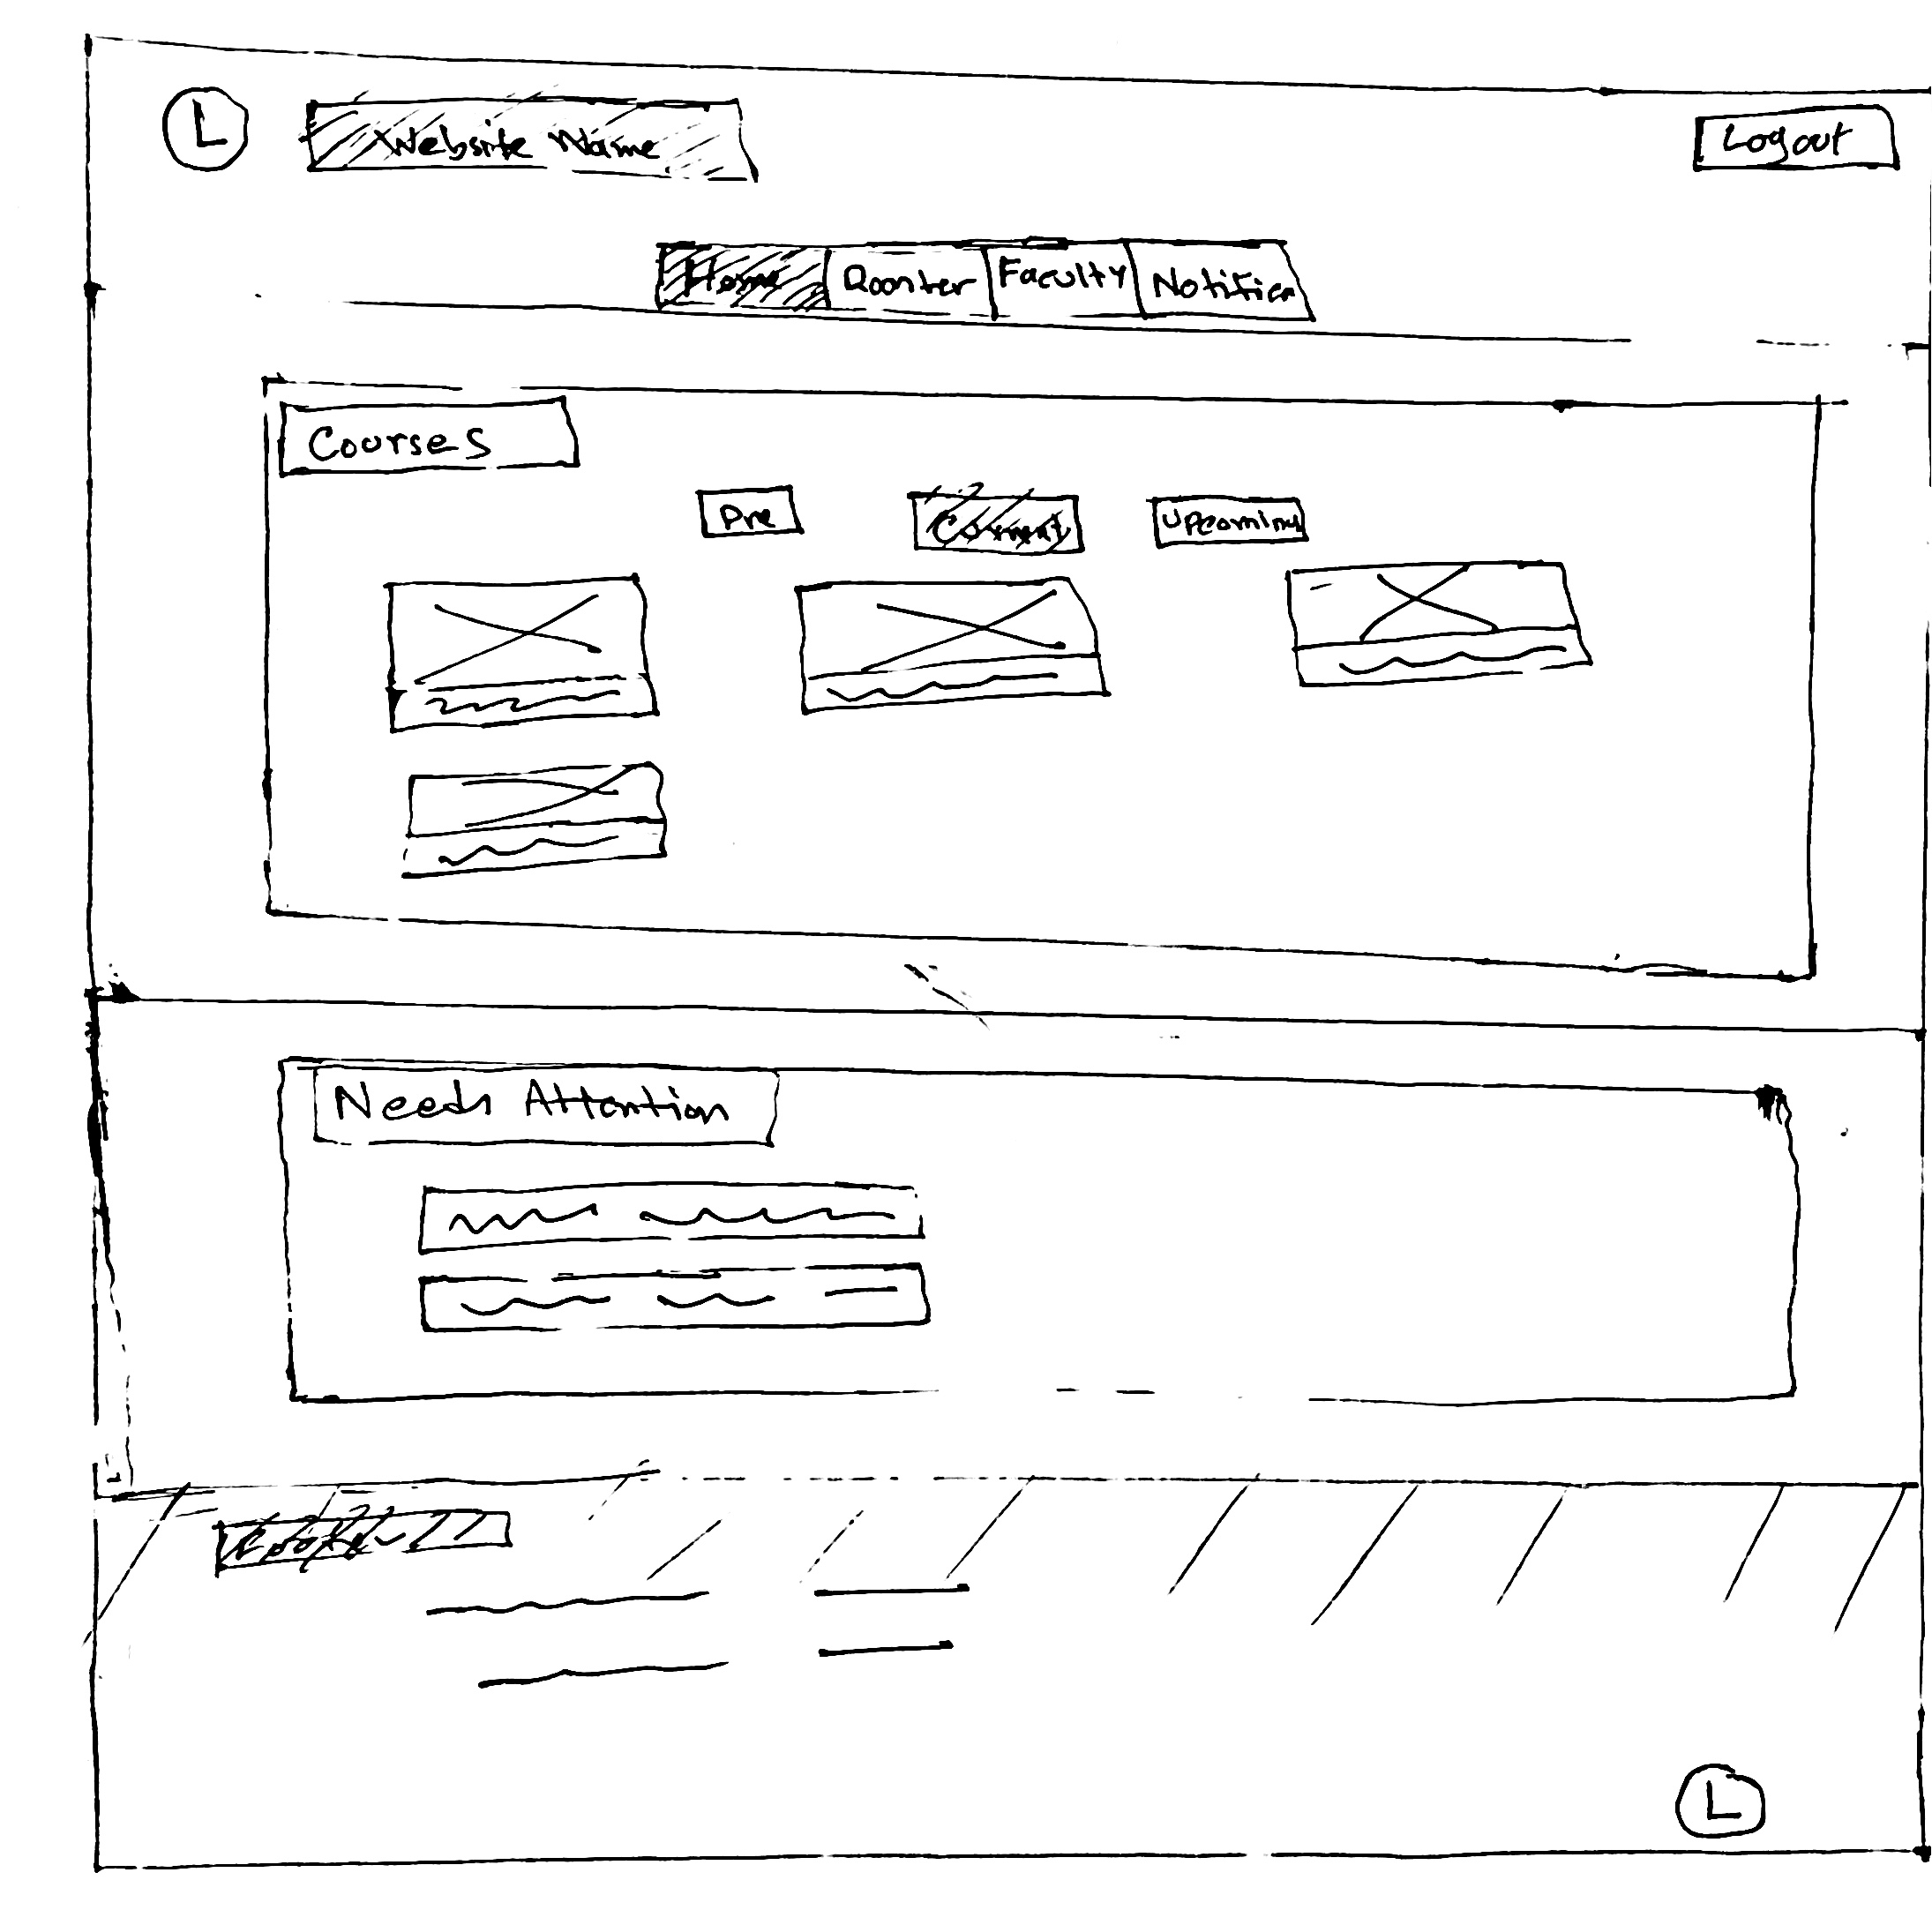 L Website Name Logout
Home Rooster Faculty Notifica
Courses
Pre Current Upcoming
Needs Attention
Footer
L